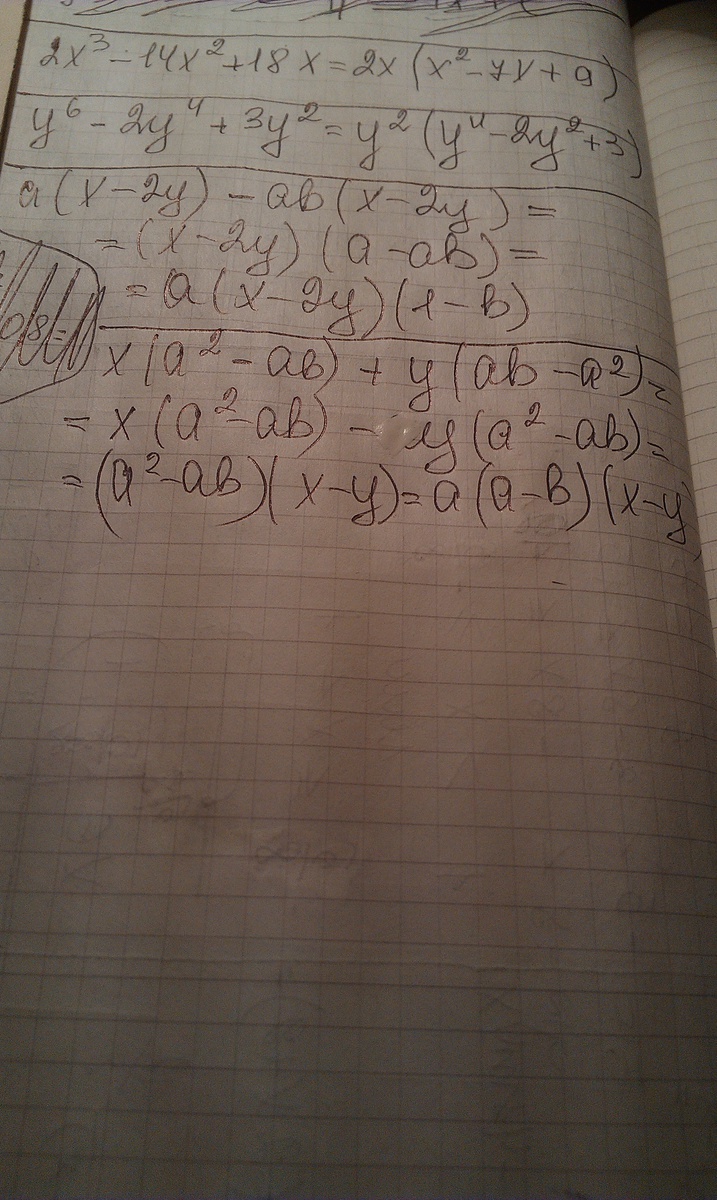 2x³ - 14x² + 18x = 2x (x² - 7x + 9)
y⁶ - 2y⁴ + 3y² = y² (y⁴ - 2y² + 3)
a (x - 2y) - ab (x - 2y) =
= (x - 2y) (a - ab) =
= a (x - 2y) (1 - b)
x (a² - ab) + y (ab - a²) =
= x (a² - ab) - y (a² - ab) =
= (a² - ab) (x - y) = a (a - b) (x - y)